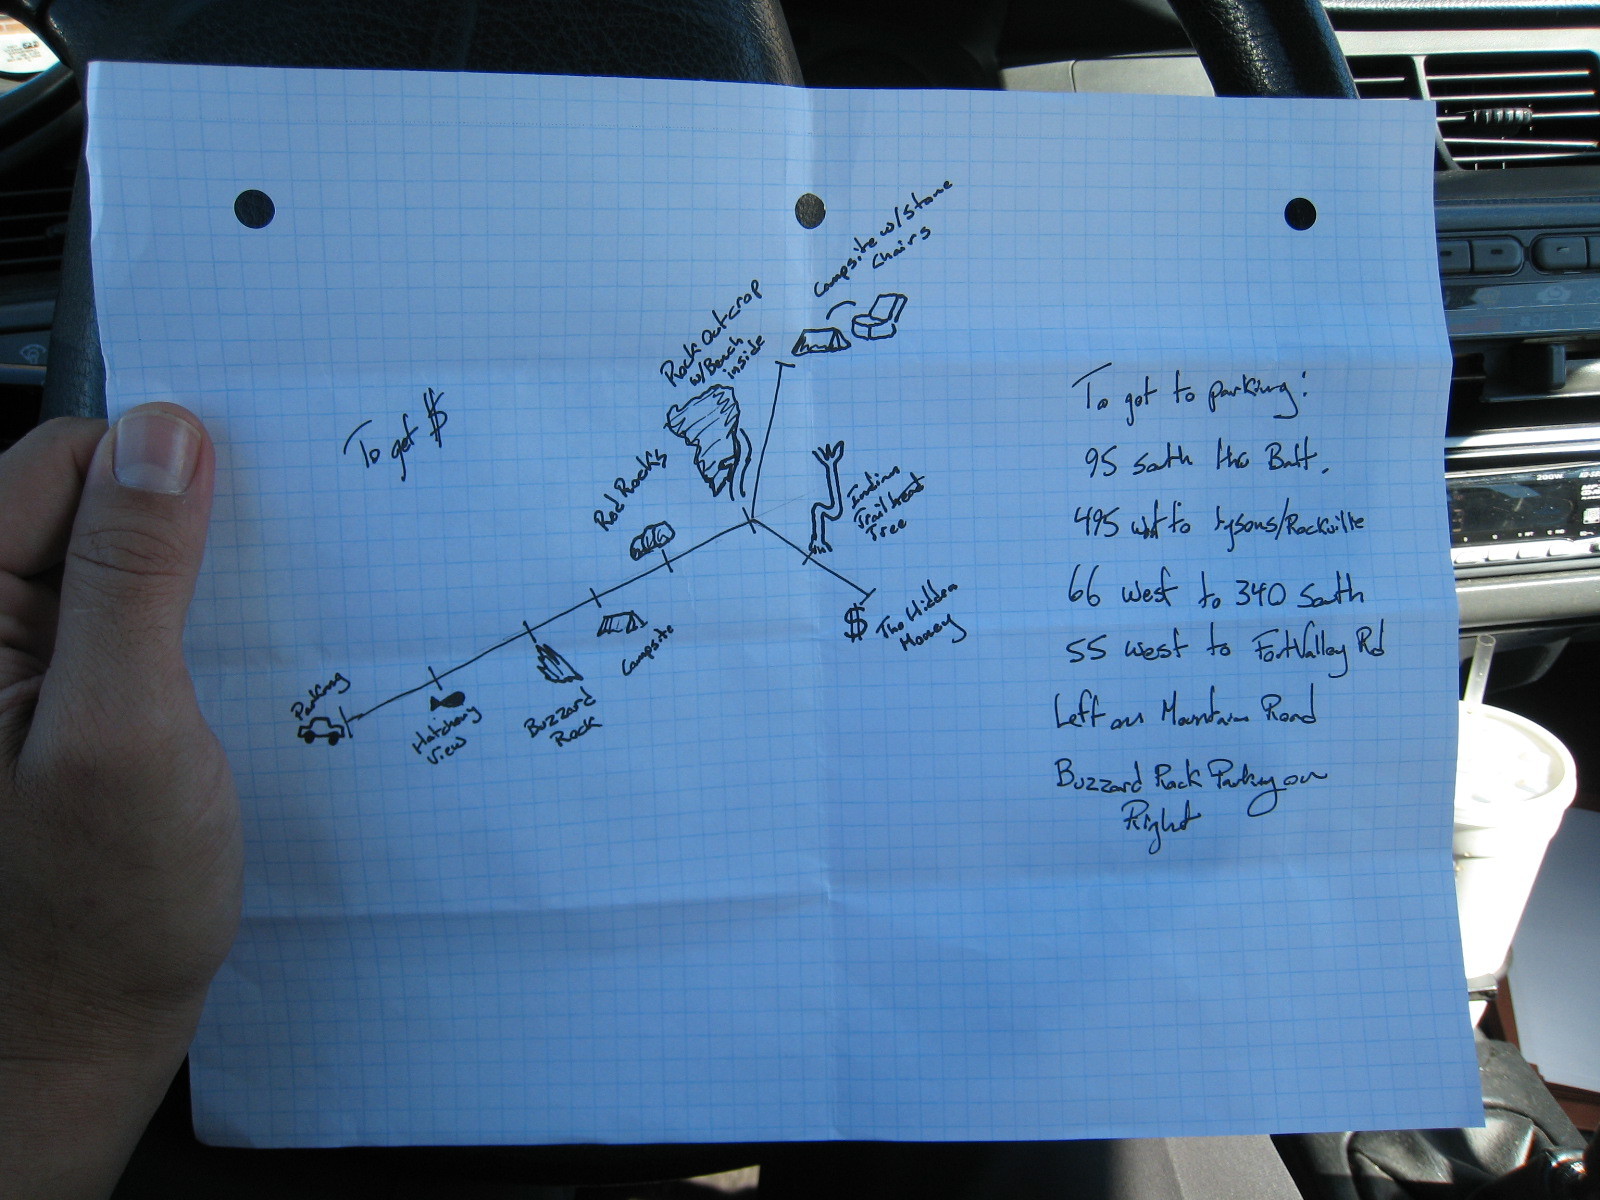 To get $
Parking
Hatchery
View
Buzzard
Rock
Campsite
Red Rocks
Rock Outcrop
w/Bench
inside
Campsite w/stone
Chairs
Indian
Trailhead
Tree
$ The Hidden
Money
To get to parking:
95 south thro Balt.
495 west to tysons/Rockville
66 west to 340 South
55 west to Fort Valley Rd
Left on Mountain Road
Buzzard Rock Parking on
Right
200W